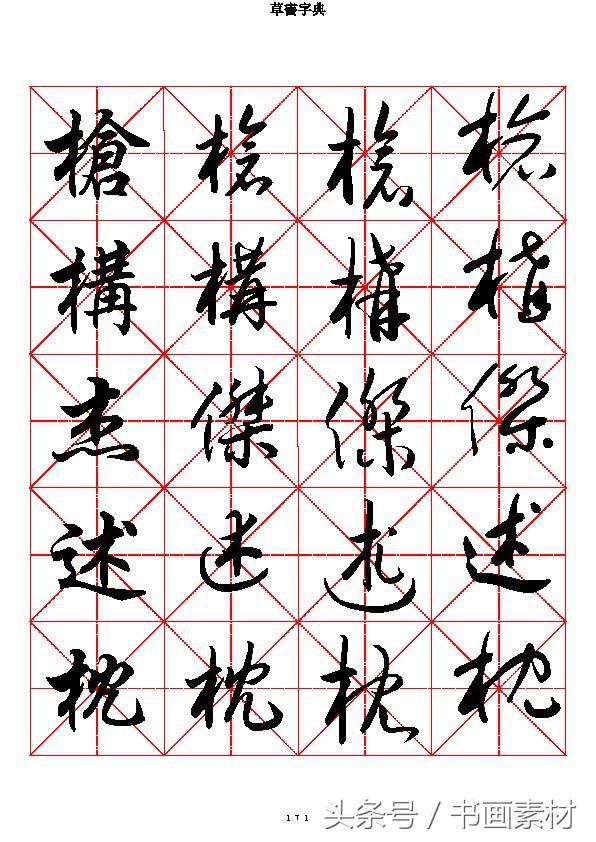 草書字典
槍 槍 槍 槍
構 構 構 構
杰 傑 傑 傑
述 述 述 述
枕 枕 枕 枕
171
头条号 / 书画素材